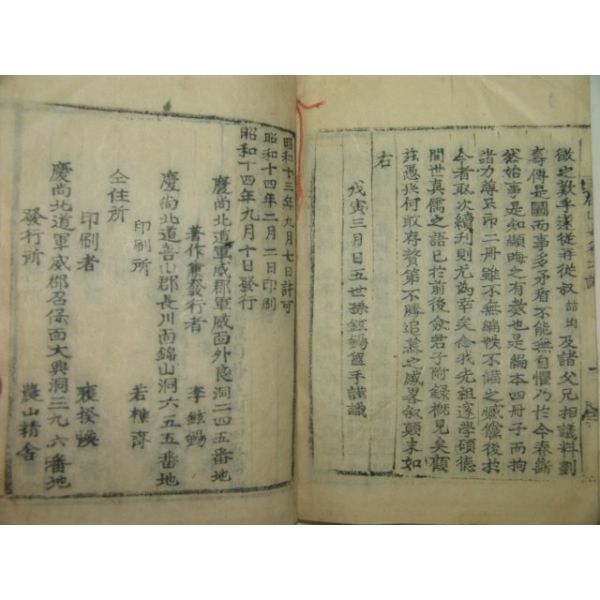 徵之歎乎遂從再從叔喆均及諸父兄相議料劃
壽傳是圖而事多矛盾不能無自懼乃於今春蕆
然始事是知顯晦之有數也是編本四冊子而拘
諸力薄只印二冊雖不無編帙不備之憾儻後於
今者取次續刊則尤爲幸矣念我先祖邃學碩德
間世眞儒之語已於前後僉君子附錄槪見矣顧
玆愚迷何敢存贅第不勝追慕之感畧敘顚末如
右
戊寅三月日五世孫鉉錫盥手謹識
昭和十三年九月七日許可
昭和十四年二月二日印刷
昭和十四年九月十日發行
慶尙北道軍威郡軍威面外良洞二四五番地
著作兼發行者 李鉉錫
慶尙北道善山郡長川面錦山洞六五五番地
印刷所 若棟齋
仝住所
印刷者
慶尙北道軍威郡召保面大興洞三九六番地
發行所 山精舍